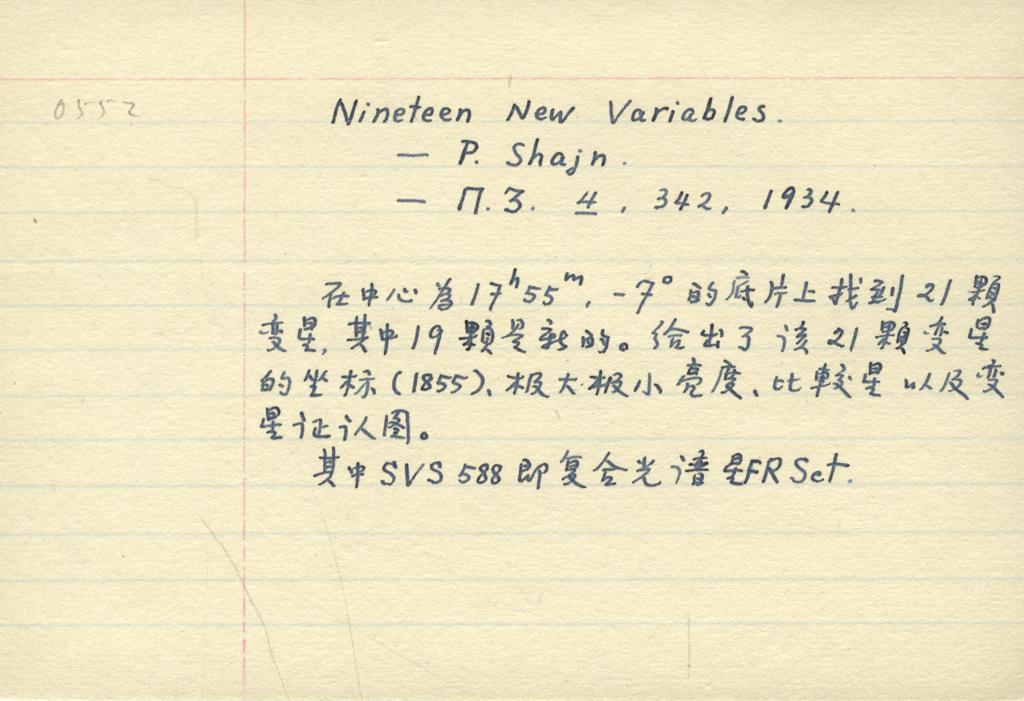 0552
Nineteen New Variables.
— P. Shajn.
— П.З. 4, 342, 1934.
在中心为17ʰ55ᵐ, -7°的底片上找到21颗
变星, 其中19颗是新的。给出了该21颗变星
的坐标(1855)、极大极小亮度、比較星以及变
星证认图。
其中SVS 588即复合光谱星FR Sct.